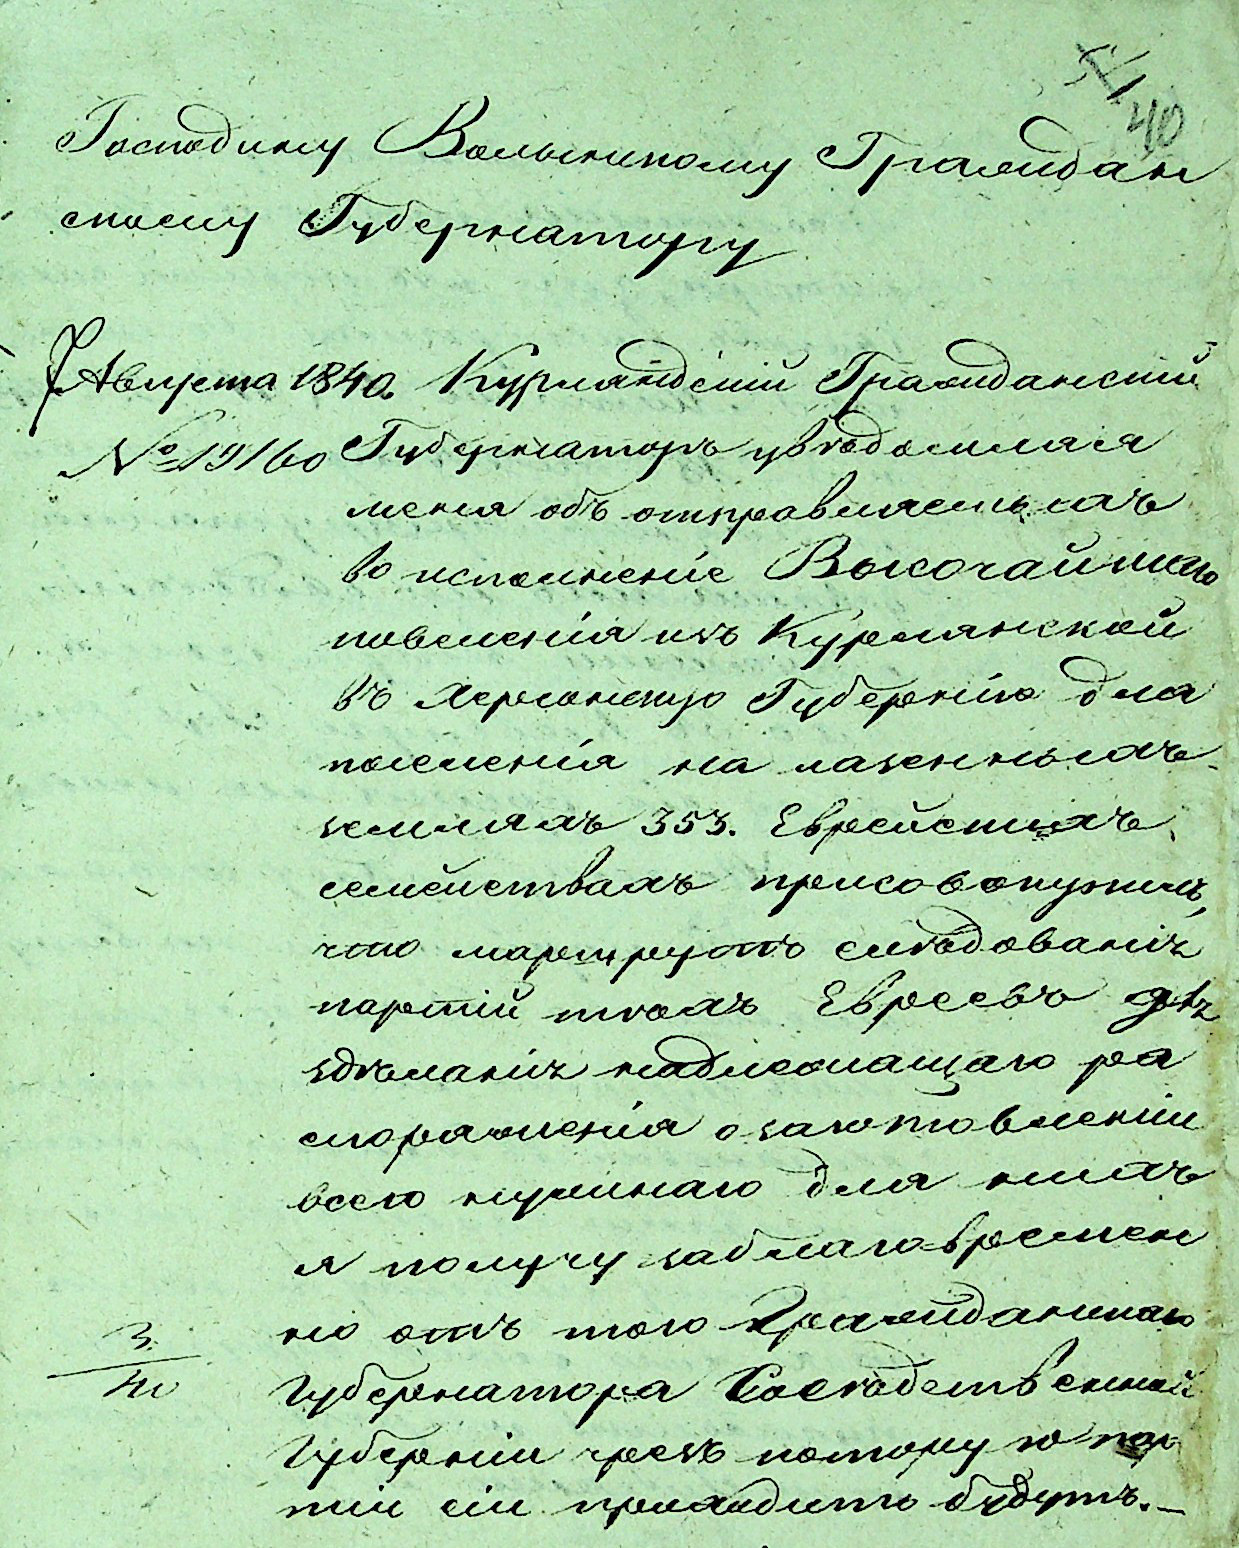 51
40
Господину Волынскому Граждан
скому Губернатору
7 Августа 1840. Курляндскій Гражданскій
№ 19160 Губернаторъ увѣдомляя
меня объ отправляемыхъ
во исполненіе Высочайшаго
повеленія изъ Курлянской
въ Херсонскую Губернію для
поселенія на казенныхъ
земляхъ 353. Еврейскихъ
семействахъ присовокупилъ,
что маршрутъ слѣдованія
партій техъ Евреевъ для
здѣланія надлежащаго ра
споряженія о заготовленіи
всего нужнаго для нихъ
я получу заблаговремен
но отъ того Гражданскаго
Губернатора Сосѣдственной
Губерніи чрезъ которую пар
тіи сіи проходить будутъ.
3
40